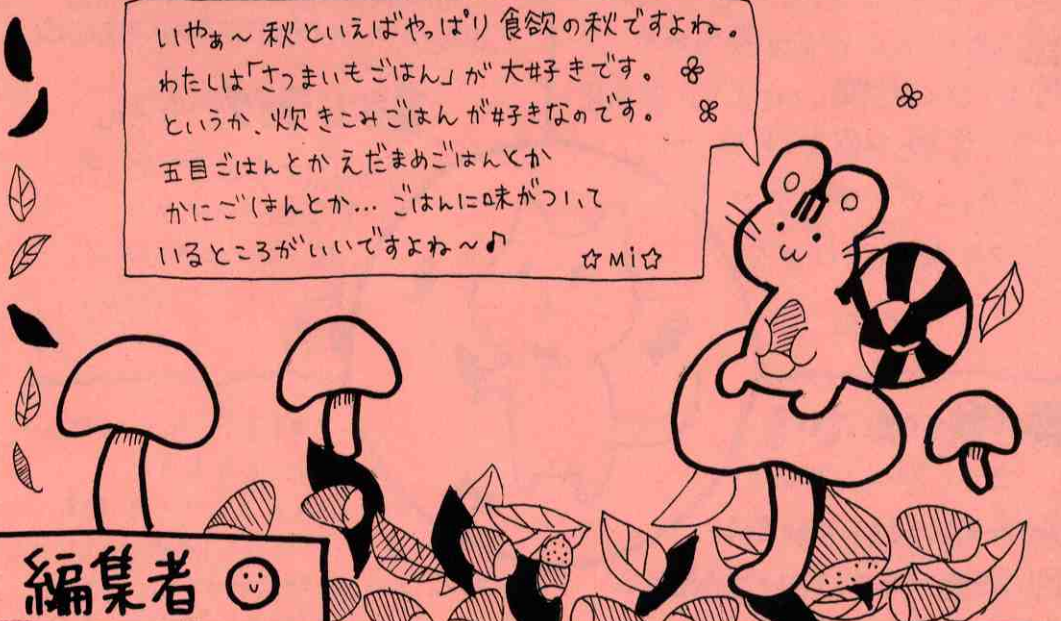 いやぁ〜秋といえばやっぱり食欲の秋ですよね。
わたしは「さつまいもごはん」が大好きです。
というか、炊きこみごはんが好きなのです。
五目ごはんとかえだまめごはんとか
かにごはんとか…ごはんに味がついて
いるところがいいですよね〜♪
☆Mi☆
編集者